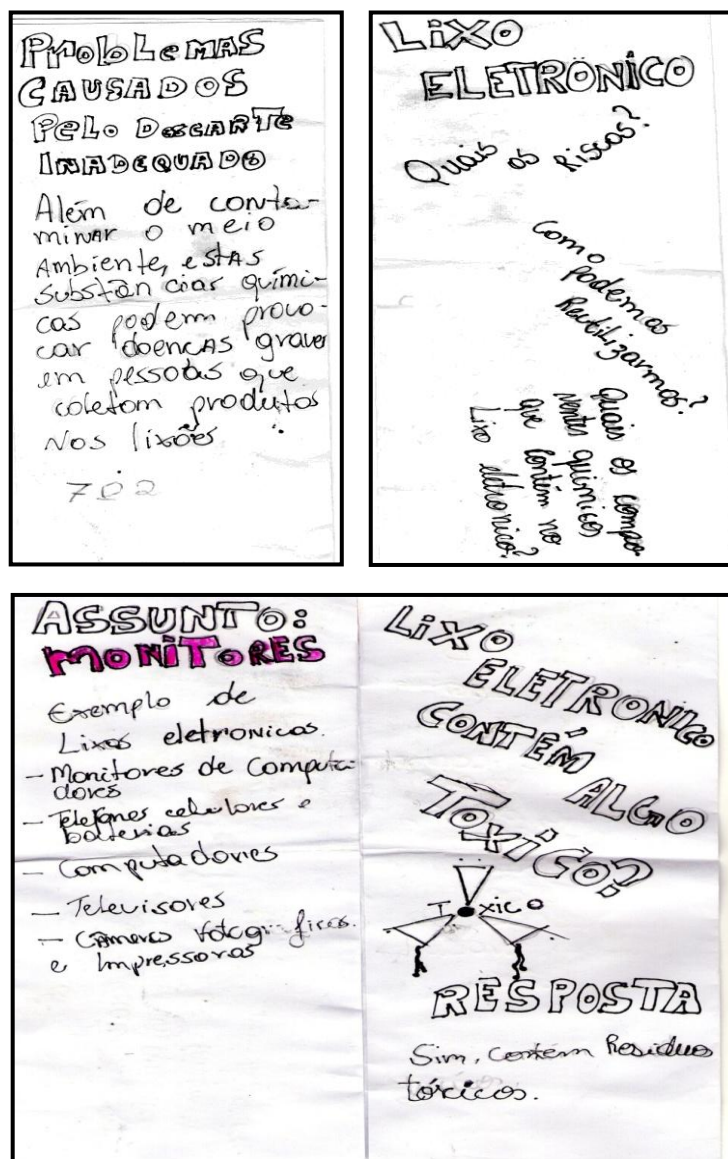 ProbLemAS
CAUSADOS
PeLo DescARTe
INADeQUADO
Além de conta-
minar o meio
Ambiente, estAs
substân cias quími-
cas podem provo-
car doencAs graves
em pessoas que
coletam produtos
Nos lixões
702
LiXO
ELETRÔNiCO
Quais os Riscos?
Como
podemos
Reutilizarmos?
Quais os compo
nentes químicos
que Contém no
Lixo eletronico?
ASSUNTO:
MONiTORES
Exemplo de
Lixos eletronicos.
- Monitores de Computa-
dores
- Telefones celulares e
baterias
- Computadores
- Televisores
- Câmeras fotográficas.
e Impressoras
LiXO
ELETRONiCO
CONTÉM
ALGO
TOXiCO?
Toxico
RESPOSTA
Sim, contém Residuos
tóxicos.